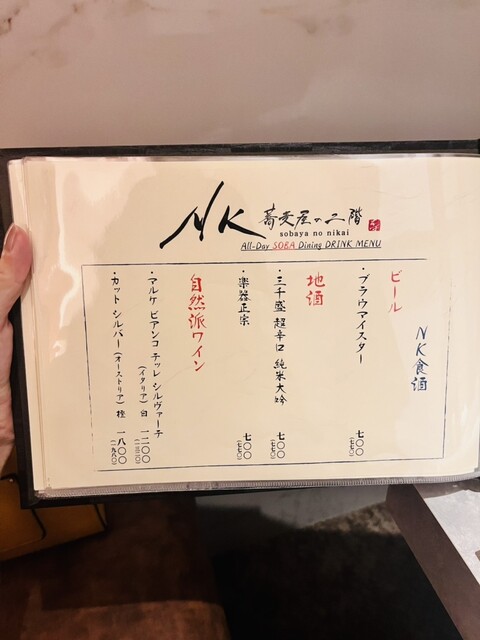 NK 蕎麦屋の二階
sobaya no nikai
All-Day SOBA Dining DRINK MENU
NK食酒
ビール
・ブラウマイスター 七〇〇
(七七〇)
地酒
・三十盛 超辛口 純米大吟 七〇〇
(七七〇)
・楽器正宗 七〇〇
(七七〇)
自然派ワイン
・マルケ ビアンコ チッレ シルヴァーチ
(イタリア) 白 一二〇〇
(一三二〇)
・カット シルバー (オーストリア) 橙 一八〇〇
(一九八〇)